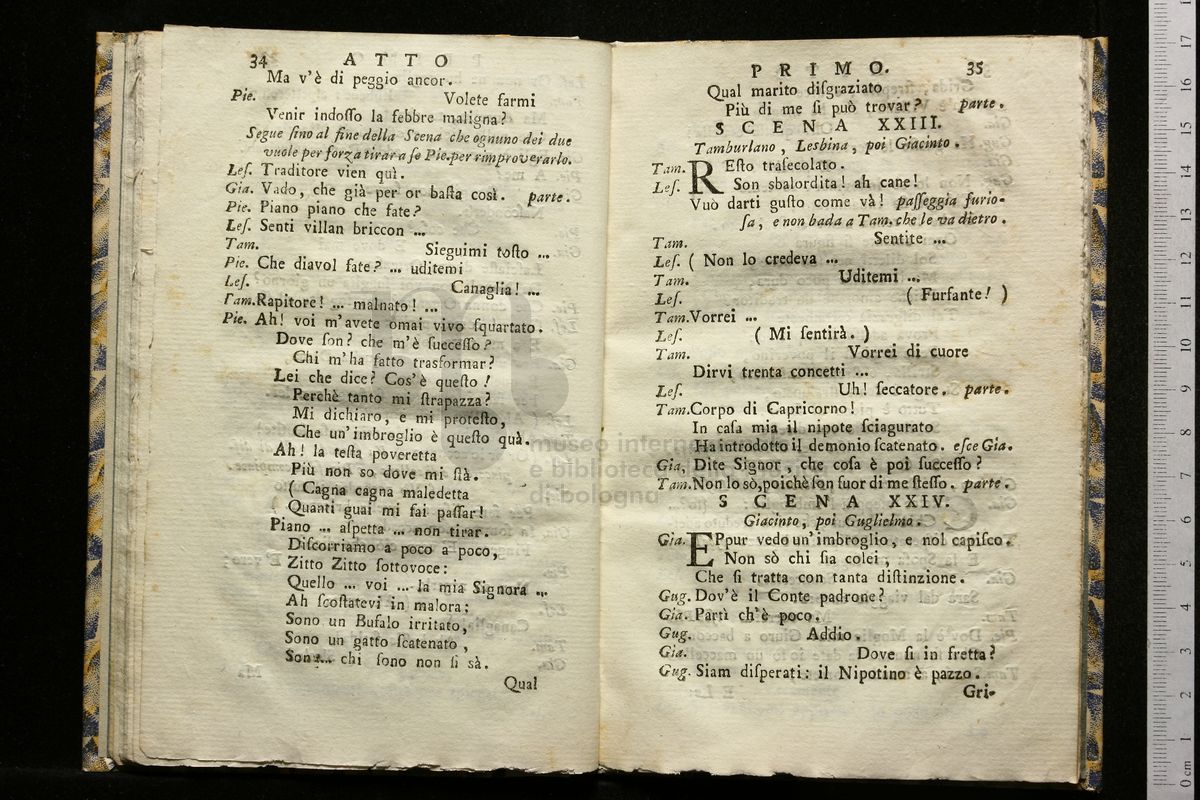 34 A T T O
Ma v'è di peggio ancor.
Pie. Volete farmi
Venir indoſſo la febbre maligna?
Segue ſino al fine della Scena che ognuno dei due
vuole per forza tirar a ſe Pie. per rimproverarlo.
Leſ. Traditore vien quì.
Gia. Vado, che già per or baſta così. parte.
Pie. Piano piano che fate?
Leſ. Senti villan briccon ...
Tam. Sieguimi toſto ...
Pie. Che diavol fate? ... uditemi
Leſ. Canaglia! ...
Tam. Rapitore! ... malnato! ...
Pie. Ah! voi m'avete omai vivo ſquartato.
Dove ſon? che m'è ſucceſſo?
Chi m'ha fatto trasformar?
Lei che dice? Cos'è queſto!
Perchè tanto mi ſtrapazza?
Mi dichiaro, e mi proteſto,
Che un'imbroglio è queſto quà.
Ah! la teſta poveretta
Più non so dove mi ſtà.
( Cagna cagna maledetta
Quanti guai mi fai paſſar!
Piano ... aſpetta ... non tirar.
Diſcorriamo a poco a poco,
Zitto Zitto ſottovoce:
Quello ... voi ... la mia Signora ...
Ah ſcoſtatevi in malora;
Sono un Bufalo irritato,
Sono un gatto ſcatenato,
Son ... chi ſono non ſi sà.
Qual
P R I M O. 35
Qual marito diſgraziato
Più di me ſi può trovar? parte.
S C E N A XXIII.
Tamburlano, Lesbina, poi Giacinto.
Tam. REſto traſecolato.
Leſ. Son sbalordita! ah cane!
Vuò darti guſto come và! paſſeggia furio-
ſa, e non bada a Tam. che le va dietro.
Tam. Sentite ...
Leſ. ( Non lo credeva ...
Tam. Uditemi ...
Leſ. ( Furfante! )
Tam. Vorrei ...
Leſ. ( Mi ſentirà. )
Tam. Vorrei di cuore
Dirvi trenta concetti ...
Leſ. Uh! ſeccatore. parte.
Tam. Corpo di Capricorno!
In caſa mia il nipote ſciagurato
Ha introdotto il demonio ſcatenato. eſce Gia.
Gia, Dite Signor, che coſa è poi ſucceſſo?
Tam. Non lo sò, poichè ſon fuor di me ſteſſo. parte.
S C E N A XXIV.
Giacinto, poi Guglielmo.
Gia. EPpur vedo un'imbroglio, e nol capiſco.
Non sò chi ſia colei,
Che ſi tratta con tanta diſtinzione.
Gug. Dov'è il Conte padrone?
Gia. Partì ch'è poco.
Gug. Addio.
Gia. Dove ſi in fretta?
Gug. Siam diſperati: il Nipotino è pazzo.
Gri-
museo intern
e biblioteca
di bologna
0 cm 1 2 3 4 5 6 7 8 9 10 11 12 13 14 15 16 17